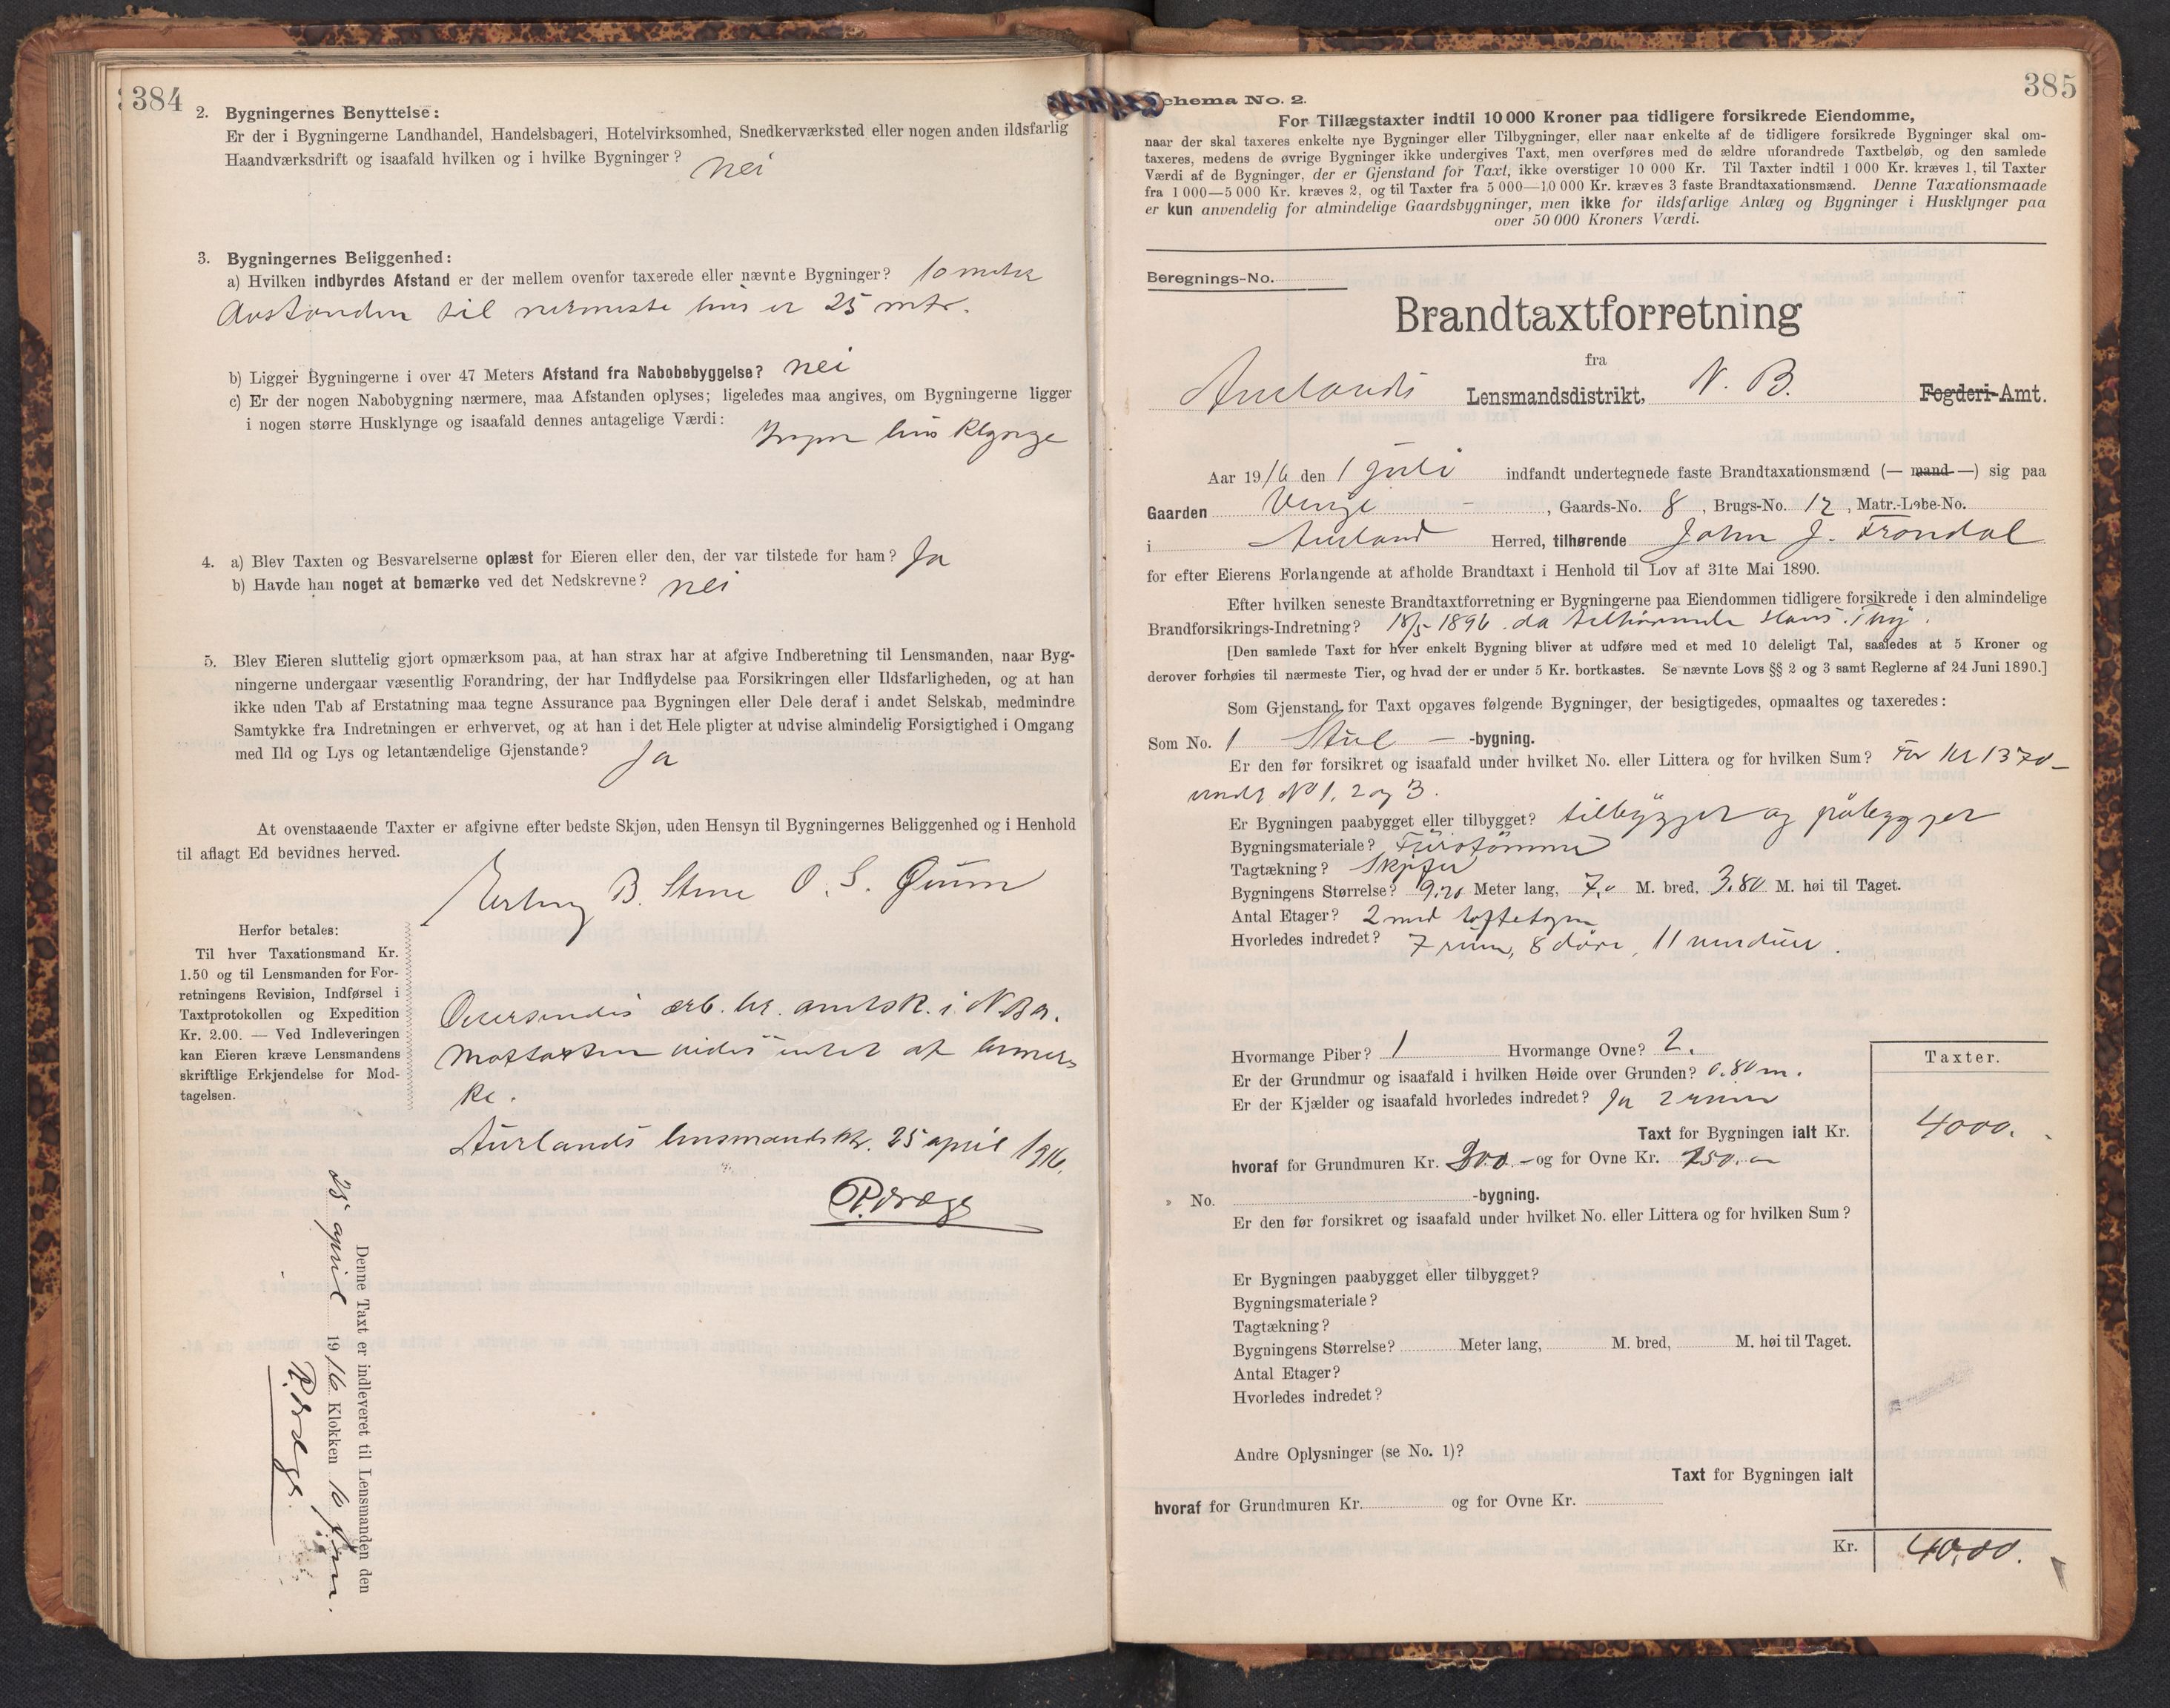 384
2. Bygningernes Benyttelse:
Er der i Bygningerne Landhandel, Handelsbageri, Hotelvirksomhed, Snedkerværksted eller nogen anden ildsfarlig
Haandværksdrift og isaafald hvilken og i hvilke Bygninger? nei
3. Bygningernes Beliggenhed:
a) Hvilken indbyrdes Afstand er der mellem ovenfor taxerede eller nævnte Bygninger? 10 meter
Avstanden til nermeste hus er 25 mtr.
b) Ligger Bygningerne i over 47 Meters Afstand fra Nabobebyggelse? nei
c) Er der nogen Nabobygning nærmere, maa Afstanden oplyses; ligeledes maa angives, om Bygningerne ligger
i nogen større Husklynge og isaafald dennes antagelige Værdi: Ingen hus klynge
4. a) Blev Taxten og Besvarelserne oplæst for Eieren eller den, der var tilstede for ham? Ja
b) Havde han noget at bemærke ved det Nedskrevne? nei
5. Blev Eieren sluttelig gjort opmærksom paa, at han strax har at afgive Indberetning til Lensmanden, naar Byg-
ningerne undergaar væsentlig Forandring, der har Indflydelse paa Forsikringen eller Ildsfarligheden, og at han
ikke uden Tab af Erstatning maa tegne Assurance paa Bygningen eller Dele deraf i andet Selskab, medmindre
Samtykke fra Indretningen er erhvervet, og at han i det Hele pligter at udvise almindelig Forsigtighed i Omgang
med Ild og Lys og letantændelige Gjenstande? Ja
At ovenstaaende Taxter er afgivne efter bedste Skjøn, uden Hensyn til Bygningernes Beliggenhed og i Henhold
til aflagt Ed bevidnes herved.
Erling B. Stene O. S. Øium
Herfor betales:
Til hver Taxationsmand Kr.
1.50 og til Lensmanden for For-
retningens Revision, Indførsel i
Taxtprotokollen og Expedition
Kr. 2.00. — Ved Indleveringen
kan Eieren kræve Lensmandens
skriftlige Erkjendelse for Mod-
tagelsen.
Oversendes ærb. hr. amtsk. i N. B. a.
Mottaxten vides intet at bemer-
ke.
Aurlands lensmandsk. 25 april 1916.
P. Dræge
Denne Taxt er indleveret til Lensmanden den
25 april 1916 Klokken 10 fm.
P. Dræge.
385
Schema No. 2.
For Tillægstaxter indtil 10 000 Kroner paa tidligere forsikrede Eiendomme,
naar der skal taxeres enkelte nye Bygninger eller Tilbygninger, eller naar enkelte af de tidligere forsikrede Bygninger skal om-
taxeres, medens de øvrige Bygninger ikke undergives Taxt, men overføres med de ældre uforandrede Taxtbeløb, og den samlede
Værdi af de Bygninger, der er Gjenstand for Taxt, ikke overstiger 10 000 Kr. Til Taxter indtil 1 000 Kr. kræves 1, til Taxter
fra 1 000—5 000 Kr. kræves 2, og til Taxter fra 5 000—10 000 Kr. kræves 3 faste Brandtaxationsmænd. Denne Taxationsmaade
er kun anvendelig for almindelige Gaardsbygninger, men ikke for ildsfarlige Anlæg og Bygninger i Husklynger paa
over 50 000 Kroners Værdi.
Beregnings-No.
Brandtaxtforretning
fra
Aurlands Lensmandsdistrikt, N. B. Fogderi-Amt.
Aar 1916 den 1 juli indfandt undertegnede faste Brandtaxationsmænd (— mand —) sig paa
Gaarden Vinje, Gaards-No. 8, Brugs-No. 12, Matr.-Løbe-No.
i Aurland Herred, tilhørende John J. Frondal
for efter Eierens Forlangende at afholde Brandtaxt i Henhold til Lov af 31te Mai 1890.
Efter hvilken seneste Brandtaxtforretning er Bygningerne paa Eiendommen tidligere forsikrede i den almindelige
Brandforsikrings-Indretning? 18/5 1896 da tilhørende Hans
[Den samlede Taxt for hver enkelt Bygning bliver at udføre med et med 10 deleligt Tal, saaledes at 5 Kroner og
derover forhøies til nærmeste Tier, og hvad der er under 5 Kr. bortkastes. Se nævnte Lovs §§ 2 og 3 samt Reglerne af 24 Juni 1890.]
Som Gjenstand for Taxt opgaves følgende Bygninger, der besigtigedes, opmaaltes og taxeredes:
Som No. 1 Stue -bygning.
Er den før forsikret og isaafald under hvilket No. eller Littera og for hvilken Sum? For Kr 1370 -
under No 1, 2 og 3.
Er Bygningen paabygget eller tilbygget? tilbygget og påbygget
Bygningsmateriale? Furutømmer
Tagtækning? Skifer
Bygningens Størrelse? 9.20 Meter lang, 7.0 M. bred, 3.80 M. høi til Taget.
Antal Etager? 2 med loftetagen
Hvorledes indredet? 7 rum, 8 døre, 11 vinduer.
Hvormange Piber? 1 Hvormange Ovne? 2.
Er der Grundmur og isaafald i hvilken Høide over Grunden? 0.80 m.
Er der Kjælder og isaafald hvorledes indredet? Ja 2 rum
Taxter.
Taxt for Bygningen ialt Kr. 4000.
hvoraf for Grundmuren Kr. 300.- og for Ovne Kr. 150.-
" No. -bygning.
Er den før forsikret og isaafald under hvilket No. eller Littera og for hvilken Sum?
Er Bygningen paabygget eller tilbygget?
Bygningsmateriale?
Tagtækning?
Bygningens Størrelse? Meter lang, M. bred, M. høi til Taget.
Antal Etager?
Hvorledes indredet?
Andre Oplysninger (se No. 1)?
Taxt for Bygningen ialt
hvoraf for Grundmuren Kr. og for Ovne Kr.
Kr. 4000.